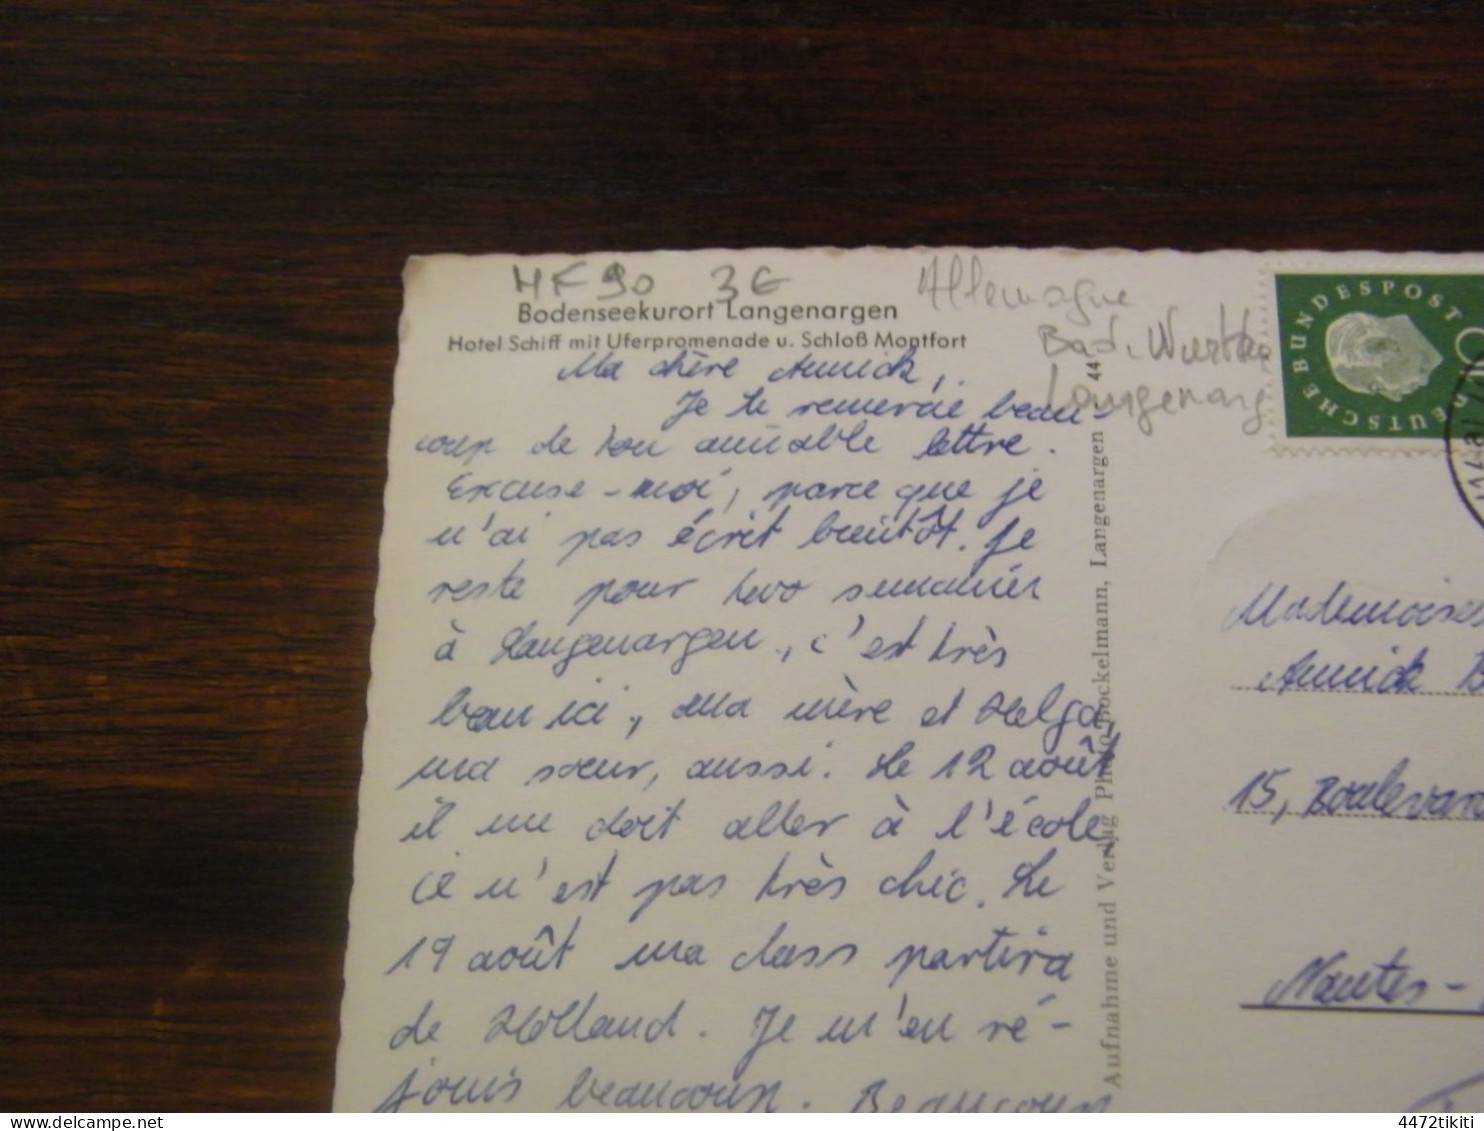 HF90 3€
Allemagne
Bad. Wurtbg
Langenarg
Bodenseekurort Langenargen
Hotel Schiff mit Uferpromenade u. Schloß Montfort
Ma chère Annick,
Je te remercie beau-
coup de ton aimable lettre.
Excuse-moi, parce que je
n'ai pas écrit bientôt. Je
reste pour two semanier
à Langenargen, c'est très
beau ici, ma mère et Helga,
ma soeur, aussi. Le 12 août
il me doit aller à l'école,
ce n'est pas très chic. Le
19 août ma class partira
de Holland. Je m'en ré-
jouis beaucoup. Beaucoup
Aufnahme und Verlag Photo-Bockelmann, Langenargen 44
DEUTSCHE BUNDESPOST
Mademoise
Annick B
15, Boulevard
Nantes-
4472tikiti